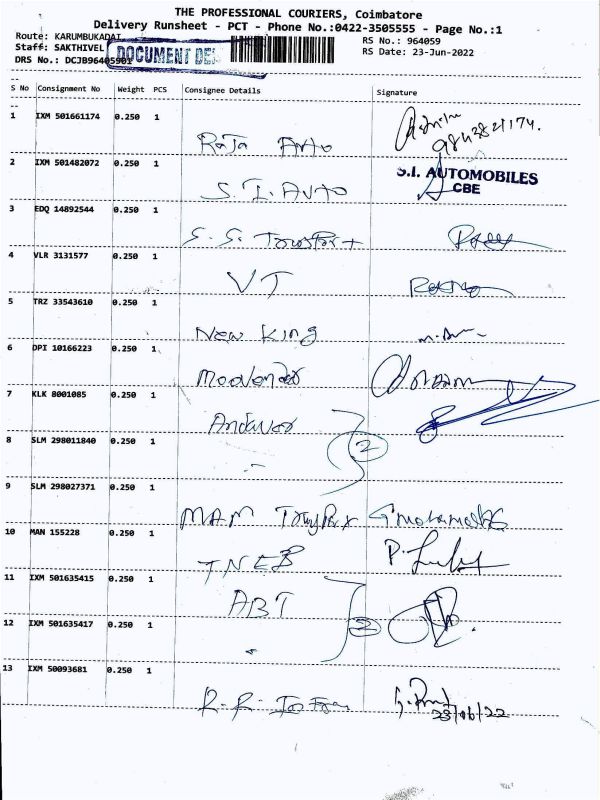 THE PROFESSIONAL COURIERS, Coimbatore
Delivery Runsheet - PCT - Phone No.:0422-3505555 - Page No.:1
Route: KARUMBUKADAI
RS No.: 964059
Staff: SAKTHIVEL
DOCUMENT DEL
RS Date: 23-Jun-2022
DRS No.: DCJB96405901
S No Consignment No Weight PCS Consignee Details Signature
1 IXM 501661174 0.250 1
Raja Auto 9843821174.
2 IXM 501482072 0.250 1
S.I. AUTOMOBILES
CBE
S. I. Auto
3 EDQ 14892544 0.250 1
S. S.
4 VLR 3131577 0.250 1
VT
5 TRZ 33543610 0.250 1
New King
6 DPI 10166223 0.250 1
7 KLK 8001085 0.250 1
Andavar
8 SLM 298011840 0.250 1
2
9 SLM 298027371 0.250 1
MAM
10 MAN 155228 0.250 1
TNEB
11 IXM 501635415 0.250 1
ABT
12 IXM 501635417 0.250 1
2
13 IXM 50093681 0.250 1
R. R.
23/06/22